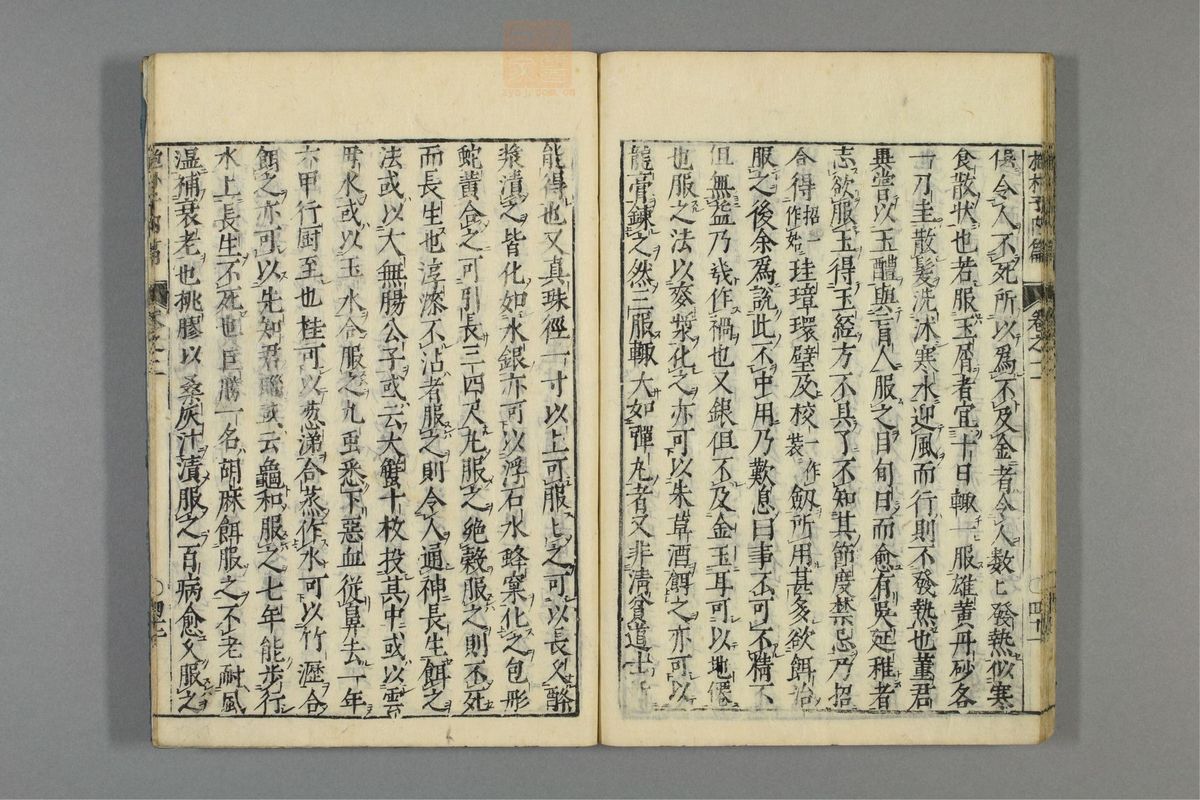 抱朴子内篇 卷之二 四十一
俱令人不死所以爲不及金者令人數〻發熱似寒
食散狀也若服玉屑者宜十日輙一服雄黄丹砂各
一刀圭散髮洗沐寒水迎風而行則不發熱也董君
異嘗以玉醴與盲人服之目旬日而愈有吳延稚者
志欲服玉得玉經方不具了不知其節度禁忌乃招
合得招一作始珪璋環璧及校一作裝劔所用甚多欲餌治
服之後余爲說此不中用乃歎息曰事不可不精不
但無益乃幾作禍也又銀但不及金玉耳可以地僊
也服之法以麥漿化之亦可以朱草酒餌之亦可以
龍膏鍊之然三服輙大如彈丸者又非清貧道士
能得也又真珠徑一寸以上可服〻之可以長久酪
漿漬之皆化如水銀亦可以浮石水蜂窠化之包彤
蛇黄合之可引長三四尺丸服之絶穀服之則不死
而長生也淳漆不沾者服之則令人通神長生餌之
法或以大無腸公子或云大蟹十枚投其中或以雲
母水或以玉水合服之九虫悉下惡血從鼻去一年
六甲行厨至也桂可以葱涕合蒸作水可以竹瀝合
餌之亦可以先知君腦或云龜和服之七年能步行
水上長生不死也巨勝一名胡麻餌服之不老耐風
濕補衰老也桃膠以桑灰汁漬服之百病愈久服之
抱朴子内篇 卷之二